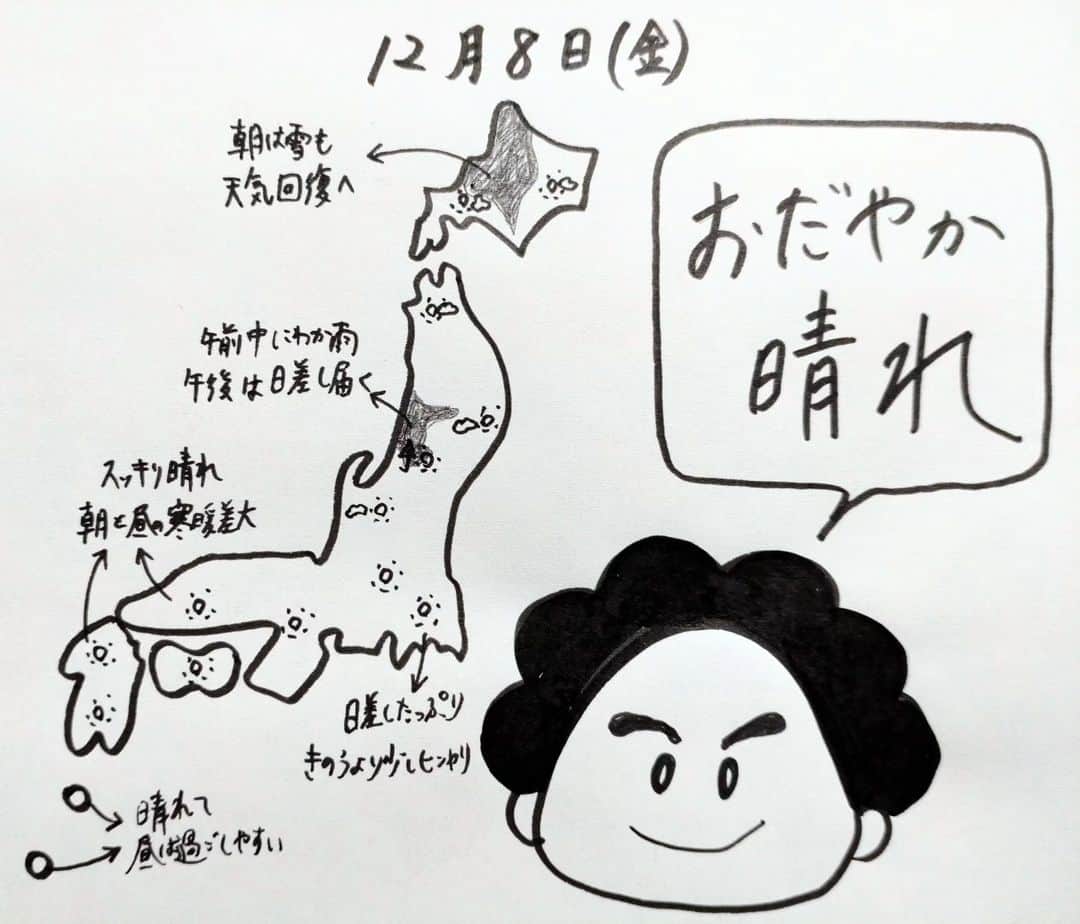 12月8日(金)
朝は雪も
天気回復へ
おだやか
晴れ
午前中にわか雨
午後は日差し届く
スッキリ晴れ
朝と昼の寒暖差大
日差したっぷり
きのうより少しヒンヤリ
晴れて
昼は過ごしやすい